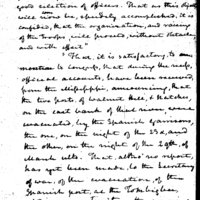 good selection of officers. That as this object
will now be, speedily accomplished, it is
expected, that the organization, and raising
of the Troops will proceed, without obstacle
and with effect"
"That, it is satisfactory, to
to Congress, that during the recess,
official accounts, have been received,
from the Missisippi, announcing, that
the two posts of Walnut Hills, & Natchez,
on the east bank of that river, were
evacuated, by the Spanish Garrisons,
the one, on the night of the 23d, and
the other, on the night of the 29th, of
March ulto. That, altho' no report,
has yet been made, to the Secretary
of war, of the evacuation, of the
Spanish post, at the Tombigbee,